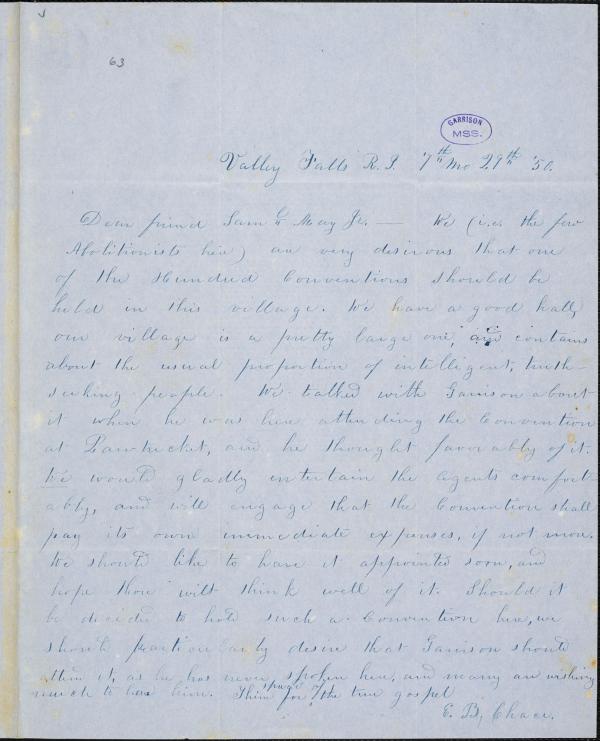 63
GARRISON
MSS.
Valley Falls R. I. 7th Mo 29th '50.
Dear friend Saml May Jr. — We (i.e. the few
Abolitionists here) are very desirous that one
of the Hundred Conventions should be
held in this village. We have a good hall,
our village is a pretty large one, and contains
about the usual proportion of intelligent, truth-
seeking people. We talked with Garrison about
it when he was here attending the Convention
at Pawtucket, and he thought favorably of it.
We would gladly entertain the agents comfort-
ably, and will engage that the Convention shall
pay its own immediate expenses, if not more.
We should like to have it appointed soon, and
hope thou wilt think well of it. Should it
be decided to hold such a Convention here, we
should particularly desire that Garrison should
attend it, as he has never spoken here, and many are wishing
much to hear him. Thine for the true gospel
E. B. Chace.